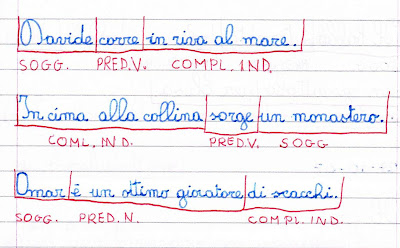 Davide corre in riva al mare.
SOGG. PRED.V. COMPL. IND.
In cima alla collina sorge un monastero.
COML. IND. PRED.V. SOGG
Omar è un ottimo giocatore di scacchi.
SOGG. PRED. N. COMPL. IND.